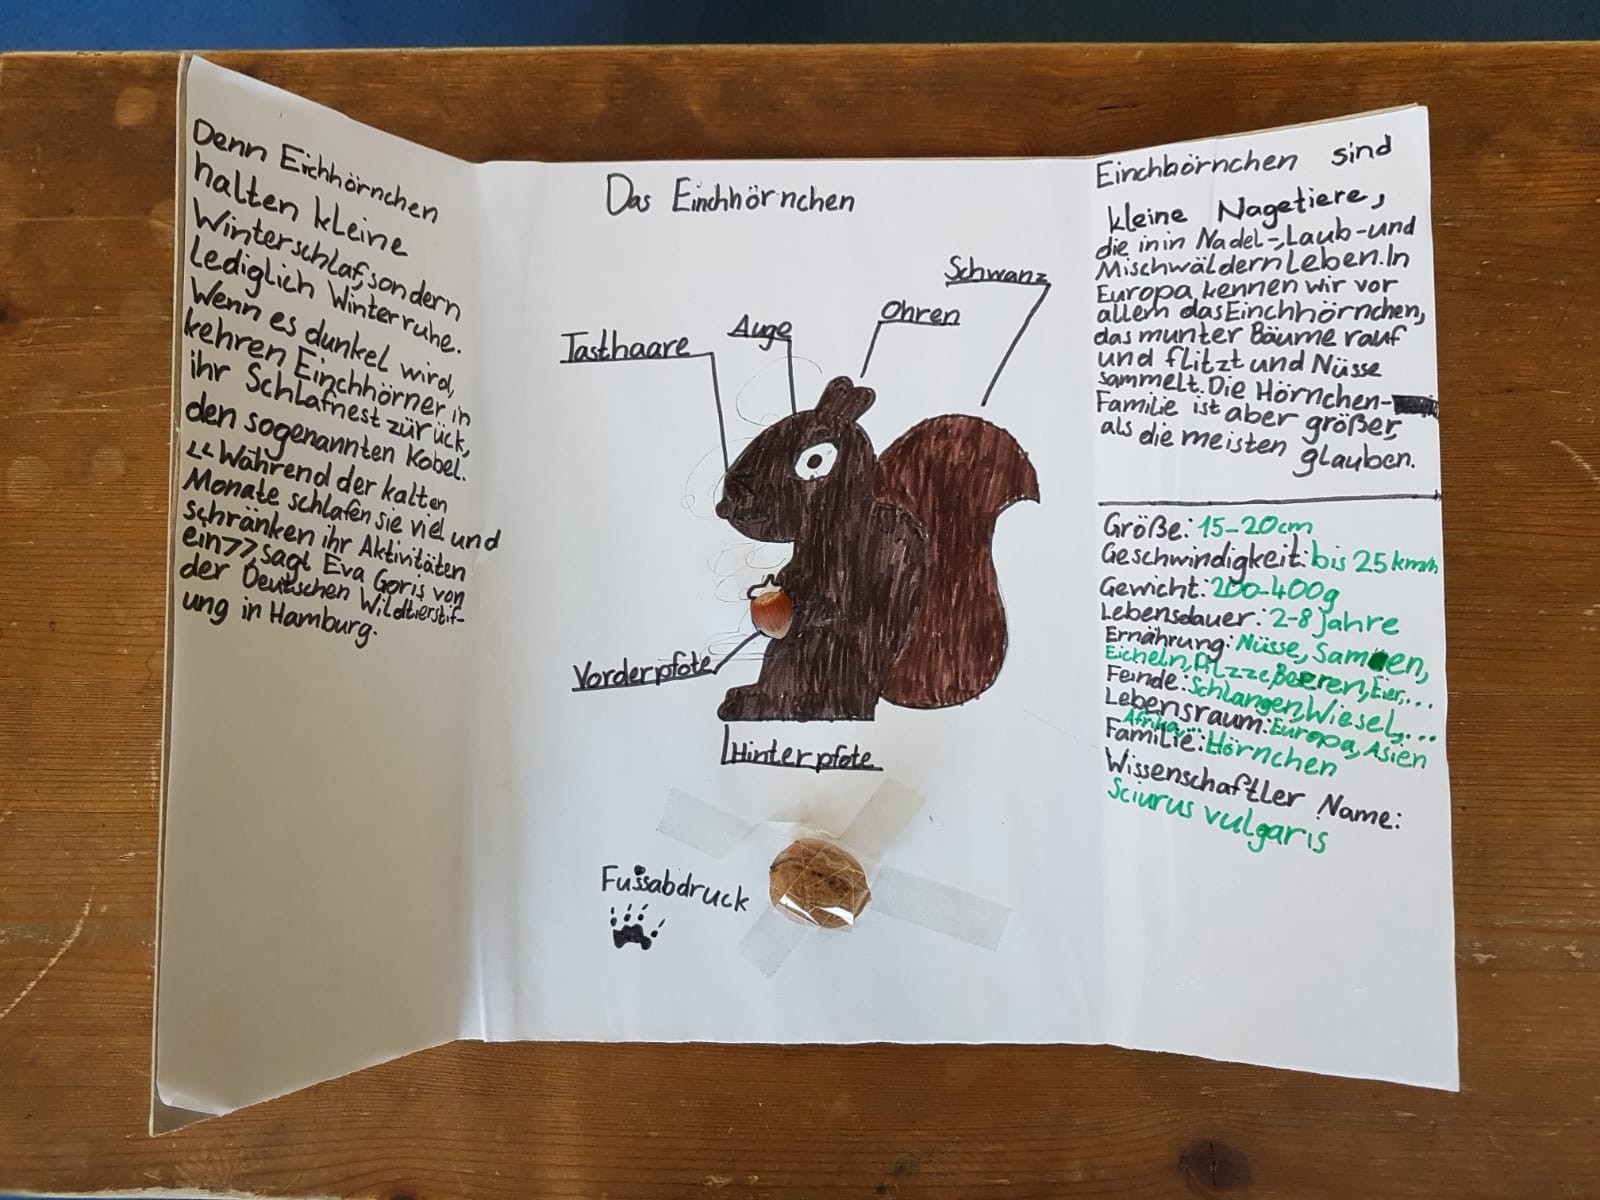 Denn Eichhörnchen
halten kleine
Winterschlaf, sondern
Lediglich Winterruhe.
Wenn es dunkel wird,
kehren Einchhörner in
ihr Schlafnest zurück,
den sogenannten Kobel.
<<Während der kalten
Monate schlafen sie viel und
schränken ihr Aktivitäten
ein>>, sagt Eva Goris von
der Deutschen Wildtierstif-
ung in Hamburg.
Das Einchhörnchen
Schwanz
Ohren
Auge
Tasthaare
Vorderpfote
Hinterpfote
Fussabdruck
Einchhörnchen sind
kleine Nagetiere,
die inin Nadel-, Laub-und
Mischwäldern Leben. In
Europa kennen wir vor
allem das Einchhörnchen,
das munter Bäume rauf
und flitzt und Nüsse
sammelt. Die Hörnchen-
Familie ist aber größer,
als die meisten
glauben.
Größe: 15-20cm
Geschwindigkeit: bis 25 kmh
Gewicht: 200-400g
Lebensdauer: 2-8 Jahre
Ernährung: Nüsse, Samen,
Eicheln, Pilzze, Beeren, Eier,...
Feinde: Schlangen, Wiesel,...
Lebensraum: Europa, Asien
Afrika...
Familie: Hörnchen
Wissenschaftler Name:
Sciurus vulgaris